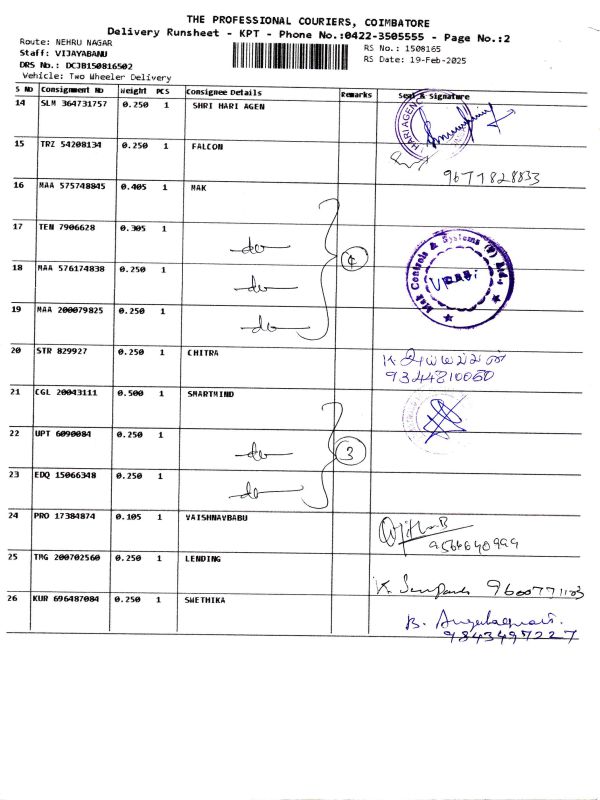 THE PROFESSIONAL COURIERS, COIMBATORE
Delivery Runsheet - KPT - Phone No.:0422-3505555 - Page No.:2
Route: NEHRU NAGAR
RS No.: 1508165
Staff: VIJAYABANU
RS Date: 19-Feb-2025
DRS No.: DCJB150816502
Vehicle: Two Wheeler Delivery
S NO Consignment No Weight PCS Consignee Details Remarks Seal & Signature
14 SLM 364731757 0.250 1 SHRI HARI AGEN
HARI AGENC
15 TRZ 54208134 0.250 1 FALCON
9677828833
16 MAA 575748845 0.405 1 MAK
17 TEN 7906628 0.305 1 do
18 MAA 576174838 0.250 1 do
4
Mak Controls & Systems (P) Ltd.
19 MAA 200079825 0.250 1 do
20 STR 829927 0.250 1 CHITRA
9344810060
21 CGL 20043111 0.500 1 SMARTMIND
22 UPT 6090084 0.250 1 do
3
23 EDQ 15066348 0.250 1 do
24 PRO 17384874 0.105 1 VAISHNAVBABU
9566640999
25 TMG 200702560 0.250 1 LENDING
K. 9600771103
26 KUR 696487084 0.250 1 SWETHIKA
B.
9843497227